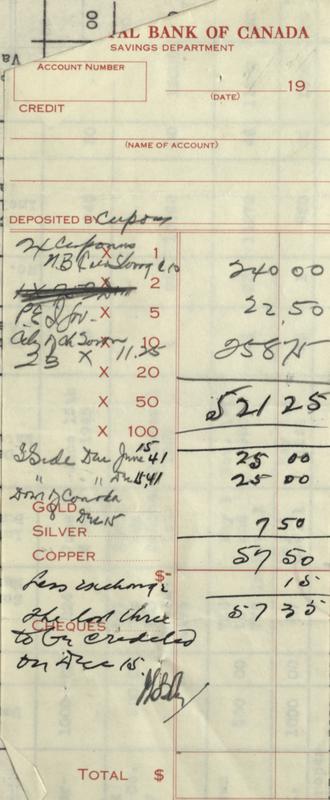 00
AL BANK OF CANADA
SAVINGS DEPARTMENT
ACCOUNT NUMBER
19
(DATE)
CREDIT
(NAME OF ACCOUNT)
DEPOSITED BY Coupons
24 Coupons X 1
N.B. 240 00
X 2
P.E.I. Gov. X 5 22 50
City of X 10
23 X 11.25 258 75
X 20
X 50 521 25
X 100
Due June 15 41 25 00
" " Dec 15, 41 25 00
Dom of Canada
GOLD Dec 15 7 50
SILVER
COPPER 57 50
$
Less exchange 15
57 35
The last three
CHEQUES
to be credited
on Dec 15.
TOTAL $